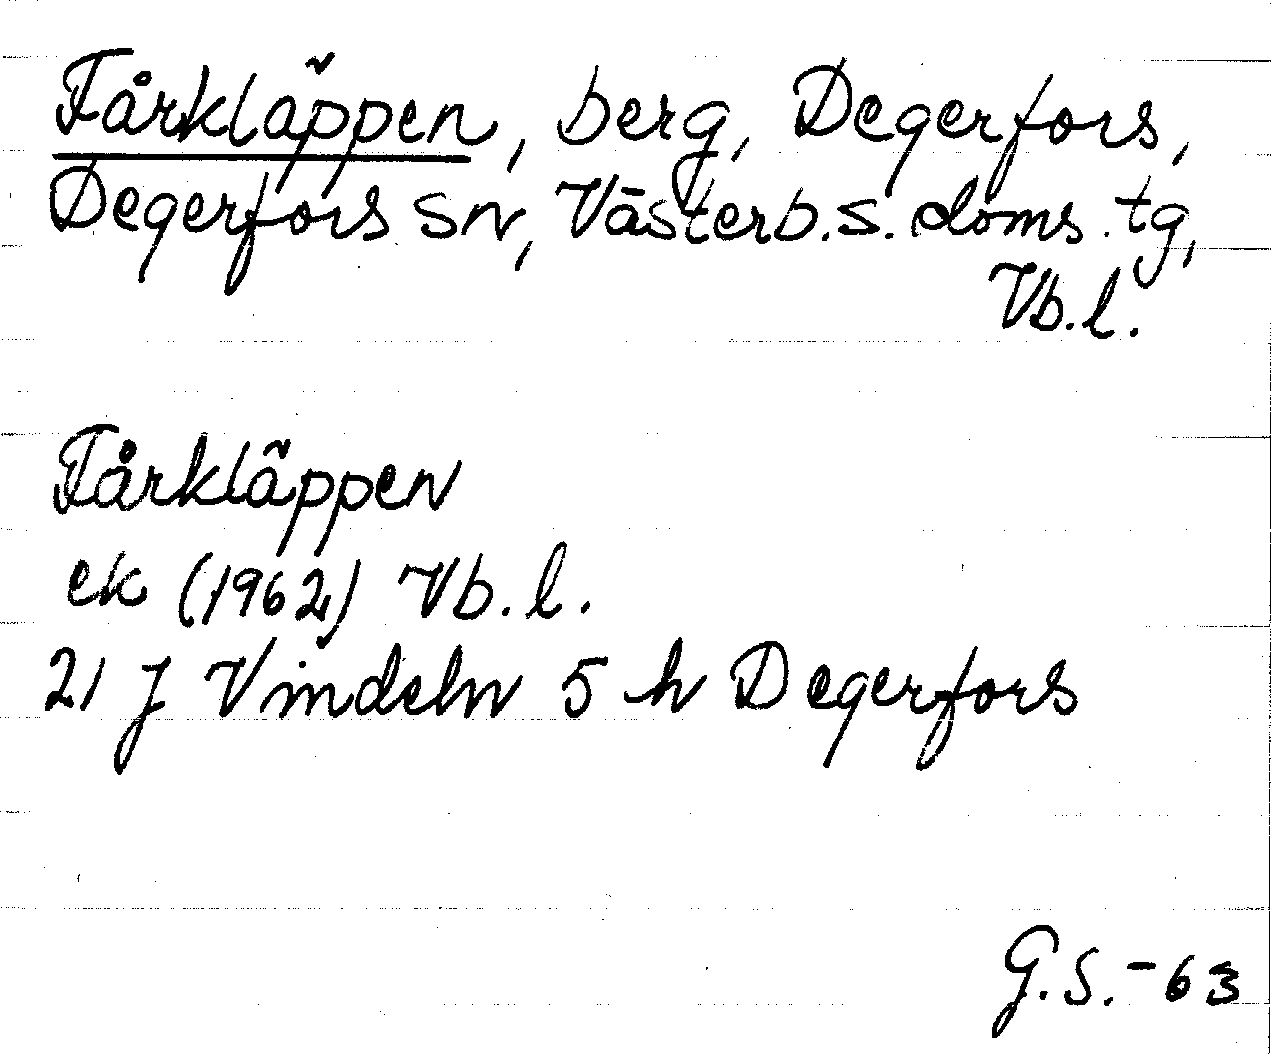 Fårkläppen, berg, Degerfors,
Degerfors sn, Västerb.s. doms.tg,
Vb.l.
Fårkläppen
ek (1962) Vb.l.
21 J Vindeln 5 h Degerfors
G.S.-63